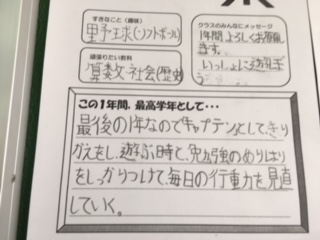 すきなこと（趣味）
野球(ソフトボール)
クラスのみんなにメッセージ
1年間よろしくお願い
します。
いっしょに遊ぼ
う
頑張りたい教科
算数 社会(歴史)
この1年間、最高学年として・・・
最後の1年なのでキャプテンとして、きり
かえをし、遊ぶ時と、勉強のめりはり
をしっかりつけて、毎日の行動力を見直
していく。